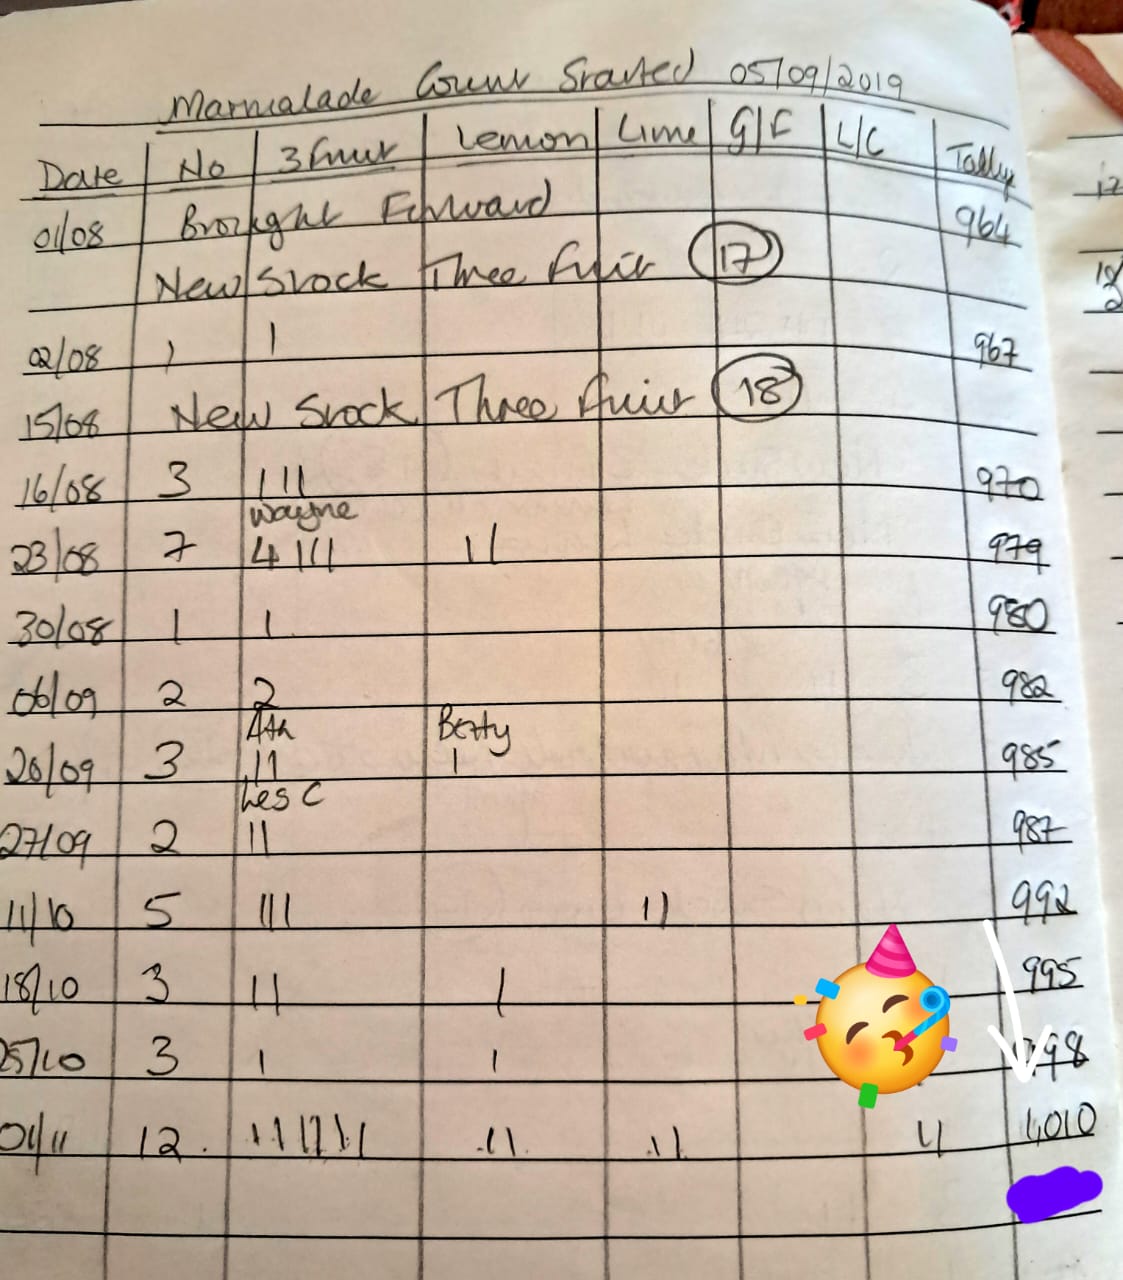 Marmalade Count Started 05/09/2019
Date No 3 Fruit Lemon Lime G/F L/C Tally
01/08 Brought Forward 964
New Stock Three Fruit 17
02/08 1 1 967
15/08 New Stock Three Fruit 18
16/08 3 111 970
Wayne
23/08 7 4 111 11 979
30/08 1 1 980
06/09 2 2 982
Betty
20/09 3 11 1 985
Les C
27/09 2 11 987
11/10 5 111 11 992
18/10 3 11 1 995
25/10 3 1 1 998
01/11 12 11 11 1,010